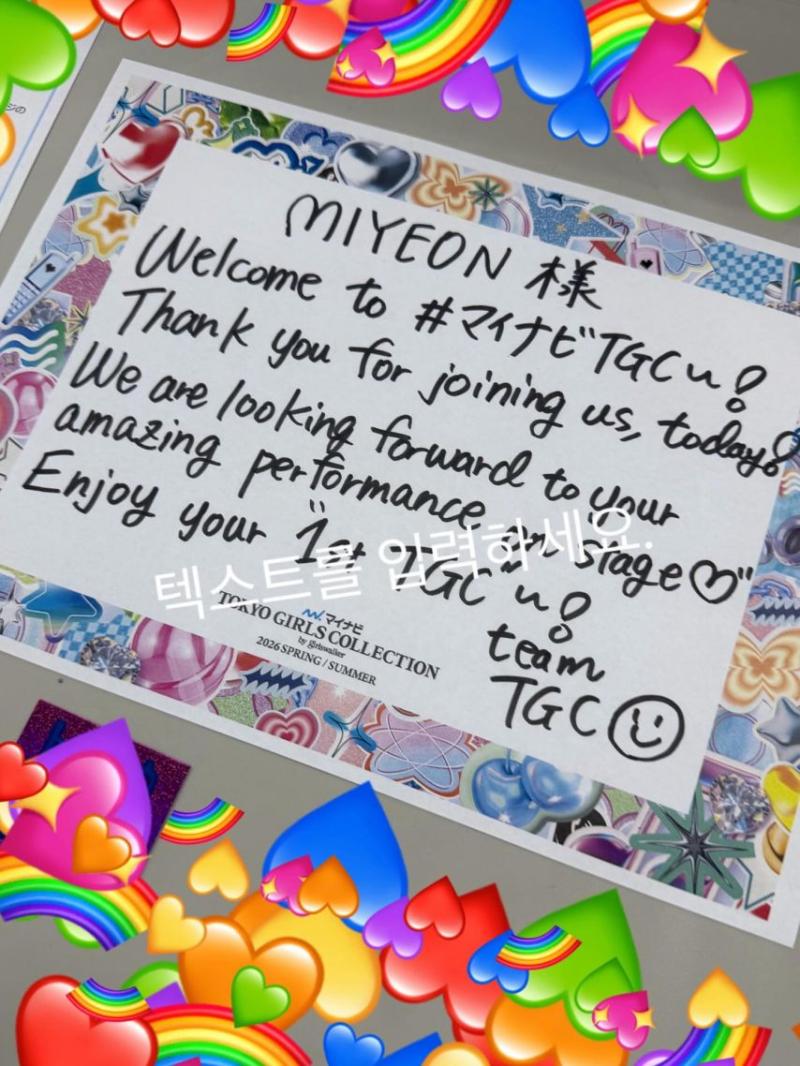 MIYEON 様
Welcome to #マイナビTGC~!
Thank you for joining us, today!
We are looking forward to your
amazing performance on stage♡"
Enjoy your "1st TGC" ~!
team
TGC☺
텍스트를 입력하세요.
マイナビ
TOKYO GIRLS COLLECTION
by girlswalker
2026 SPRING / SUMMER